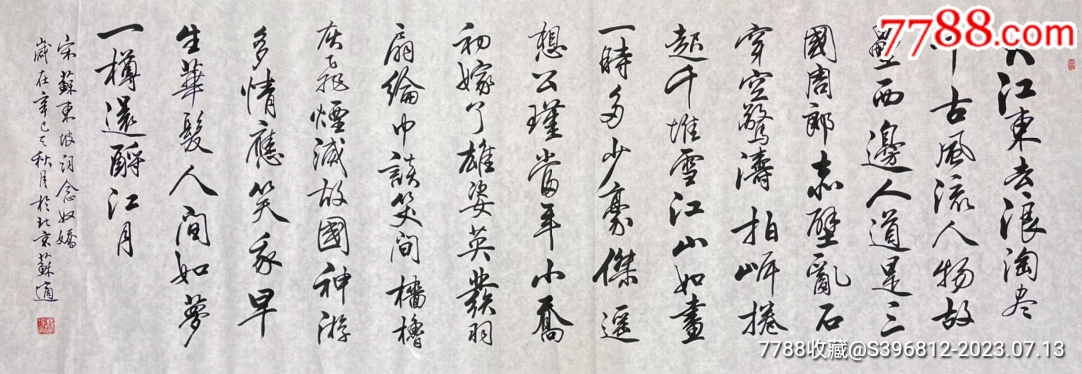 大江東去浪淘尽
千古風流人物故
壘西邊人道是三
國周郎赤壁亂石
穿空驚濤拍岍捲
起千堆雪江山如畫
一時多少豪傑遥
想公瑾當年小喬
初嫁了雄姿英發羽
扇綸巾談笑间檣櫓
灰飞煙滅故國神游
多情應笑我早
生華髮人间如夢
一樽還酹江月
宋蘇東坡詞念奴嬌
歲在辛巳秋月於北京蘇適
7788.com
7788收藏@S396812-2023.07.13